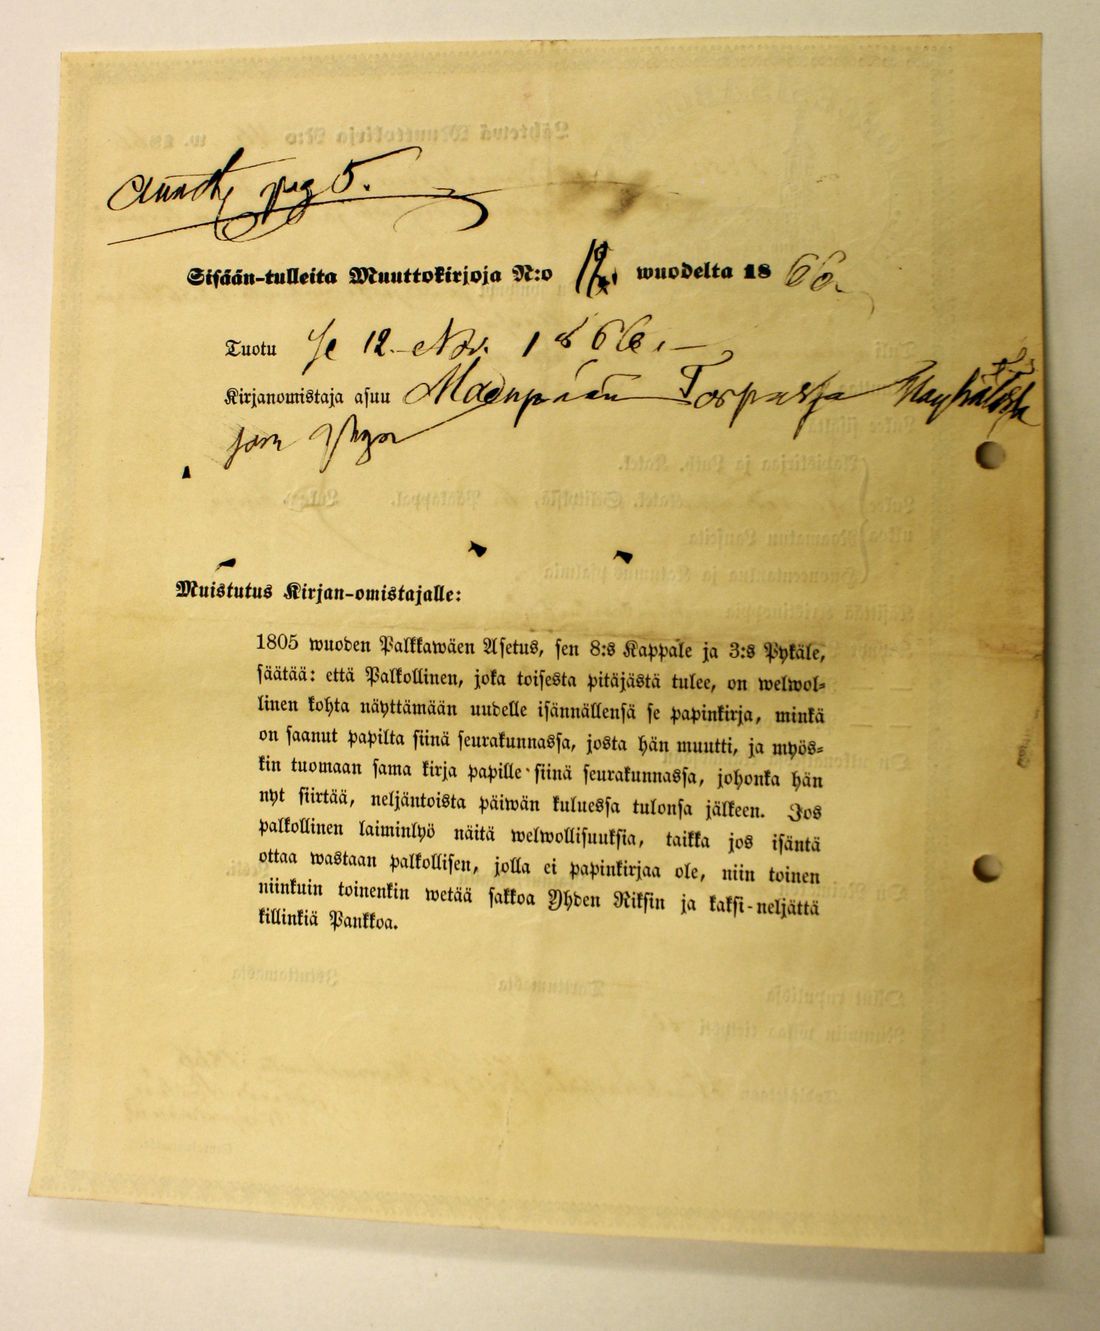 pag 5.
Sisään-tulleita Muuttokirjoja N:o 12. wuodelta 1866.
Tuotu se 12. Nov. 1866.
Kirjanomistaja asuu Torpassa
Muistutus Kirjan-omistajalle:
1805 wuoden Palkkawäen Asetus, sen 8:s Kappale ja 3:s Pykäle,
säätää: että Palkollinen, joka toisesta pitäjästä tulee, on welwol-
linen kohta näyttämään uudelle isännällensä se papinkirja, minkä
on saanut papilta siinä seurakunnassa, josta hän muutti, ja myös-
kin tuomaan sama kirja papille siinä seurakunnassa, johonka hän
nyt siirtää, neljäntoista päiwän kuluessa tulonsa jälkeen. Jos
palkollinen laiminlyö näitä welwollisuuksia, taikka jos isäntä
ottaa wastaan palkollisen, jolla ei papinkirjaa ole, niin toinen
niinkuin toinenkin wetää sakkoa Yhden Riksin ja kaksi-neljättä
killinkiä Pankkoa.